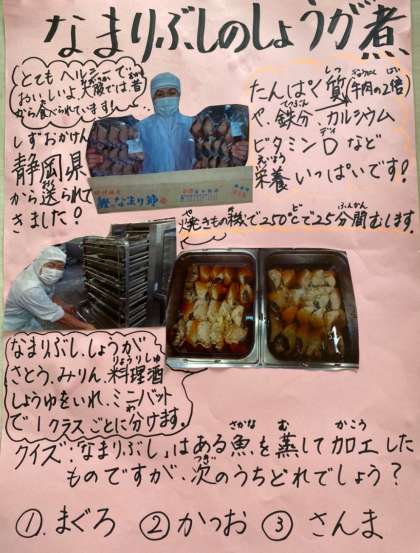 なまりぶしのしょうが煮
とてもヘルシーで
おいしいよ大阪では昔
から食べられています。
しずおかけん
静岡県
から送られて
きました!
たんぱく質(牛肉の2倍)
や、鉄分、カルシウム
ビタミンDなど
栄養いっぱいです!
なまり節
焼きもの機で250℃で25分間むします。
なまりぶし、しょうが
さとう、みりん、料理酒
しょうゆをいれ、ミニバット
で1クラスごとに分けます。
クイズ:「なまりぶし」はある魚を蒸して加工した
ものですが、次のうちどれでしょう?
①.まぐろ ②かつお ③さんま